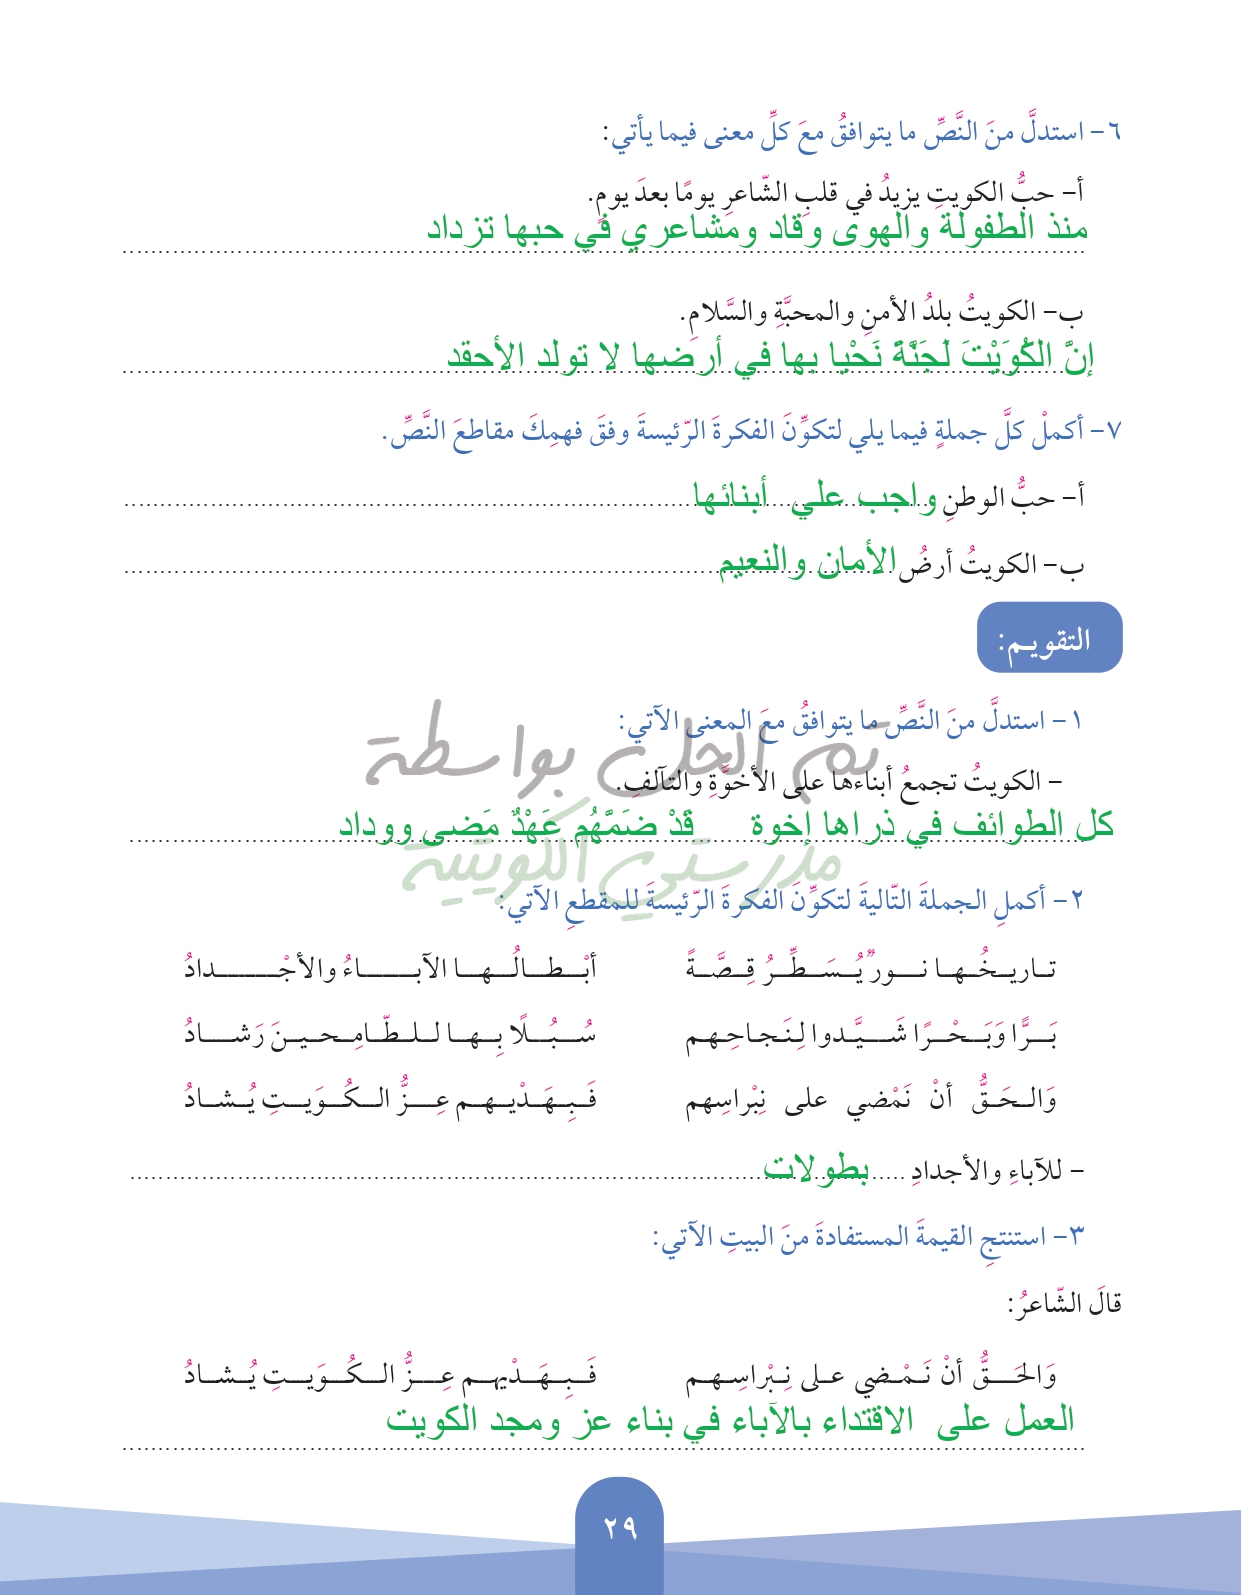 ٦- استدلَّ منَ النَّصِّ ما يتوافقُ معَ كلِّ معنى فيما يأتي:
أ- حبُّ الكويتِ يزيدُ في قلبِ الشّاعرِ يومًا بعدَ يومٍ.
منذ الطفولة والهوى وقاد ومشاعري في حبها تزداد
ب- الكويتُ بلدُ الأمنِ والمحبَّةِ والسَّلامِ.
إنَّ الكُوَيْتَ لَجَنَّةً نَحْيا بها في أرضها لا تولد الأحقد
٧- أكملْ كلَّ جملةٍ فيما يلي لتكوِّنَ الفكرةَ الرّئيسةَ وفقَ فهمِكَ مقاطعَ النَّصِّ.
أ- حبُّ الوطنِ واجب علي أبنائها
ب- الكويتُ أرضُ الأمان والنعيم
التقويم:
١- استدلَّ منَ النَّصِّ ما يتوافقُ معَ المعنى الآتي:
تم الحل بواسطة
- الكويتُ تجمعُ أبناءَها على الأخوَّةِ والتآلفِ.
كل الطوائف في ذراها إخوة قَدْ ضَمَّهُم عَهْدٌ مَضى ووداد
مدرستي الكويتية
٢- أكملِ الجملةَ التّاليةَ لتكوِّنَ الفكرةَ الرّئيسةَ للمقطعِ الآتي:
تاريخُها نورٌ يُسَطِّرُ قِصَّةً أبْطالُها الآباءُ والأجْدادُ
بَرًّا وَبَحْرًا شَيَّدوا لِنَجاحِهم سُبُلًا بِها للطّامِحينَ رَشادُ
وَالحَقُّ أنْ نَمْضي على نِبْراسِهم فَبِهَدْيِهم عِزُّ الكُوَيتِ يُشادُ
- للآباءِ والأجدادِ بطولات
٣- استنتجِ القيمةَ المستفادةَ منَ البيتِ الآتي:
قالَ الشّاعرُ:
وَالحَقُّ أنْ نَمْضي على نِبْراسِهم فَبِهَدْيهم عِزُّ الكُوَيتِ يُشادُ
العمل على الاقتداء بالآباء في بناء عز ومجد الكويت
٢٩